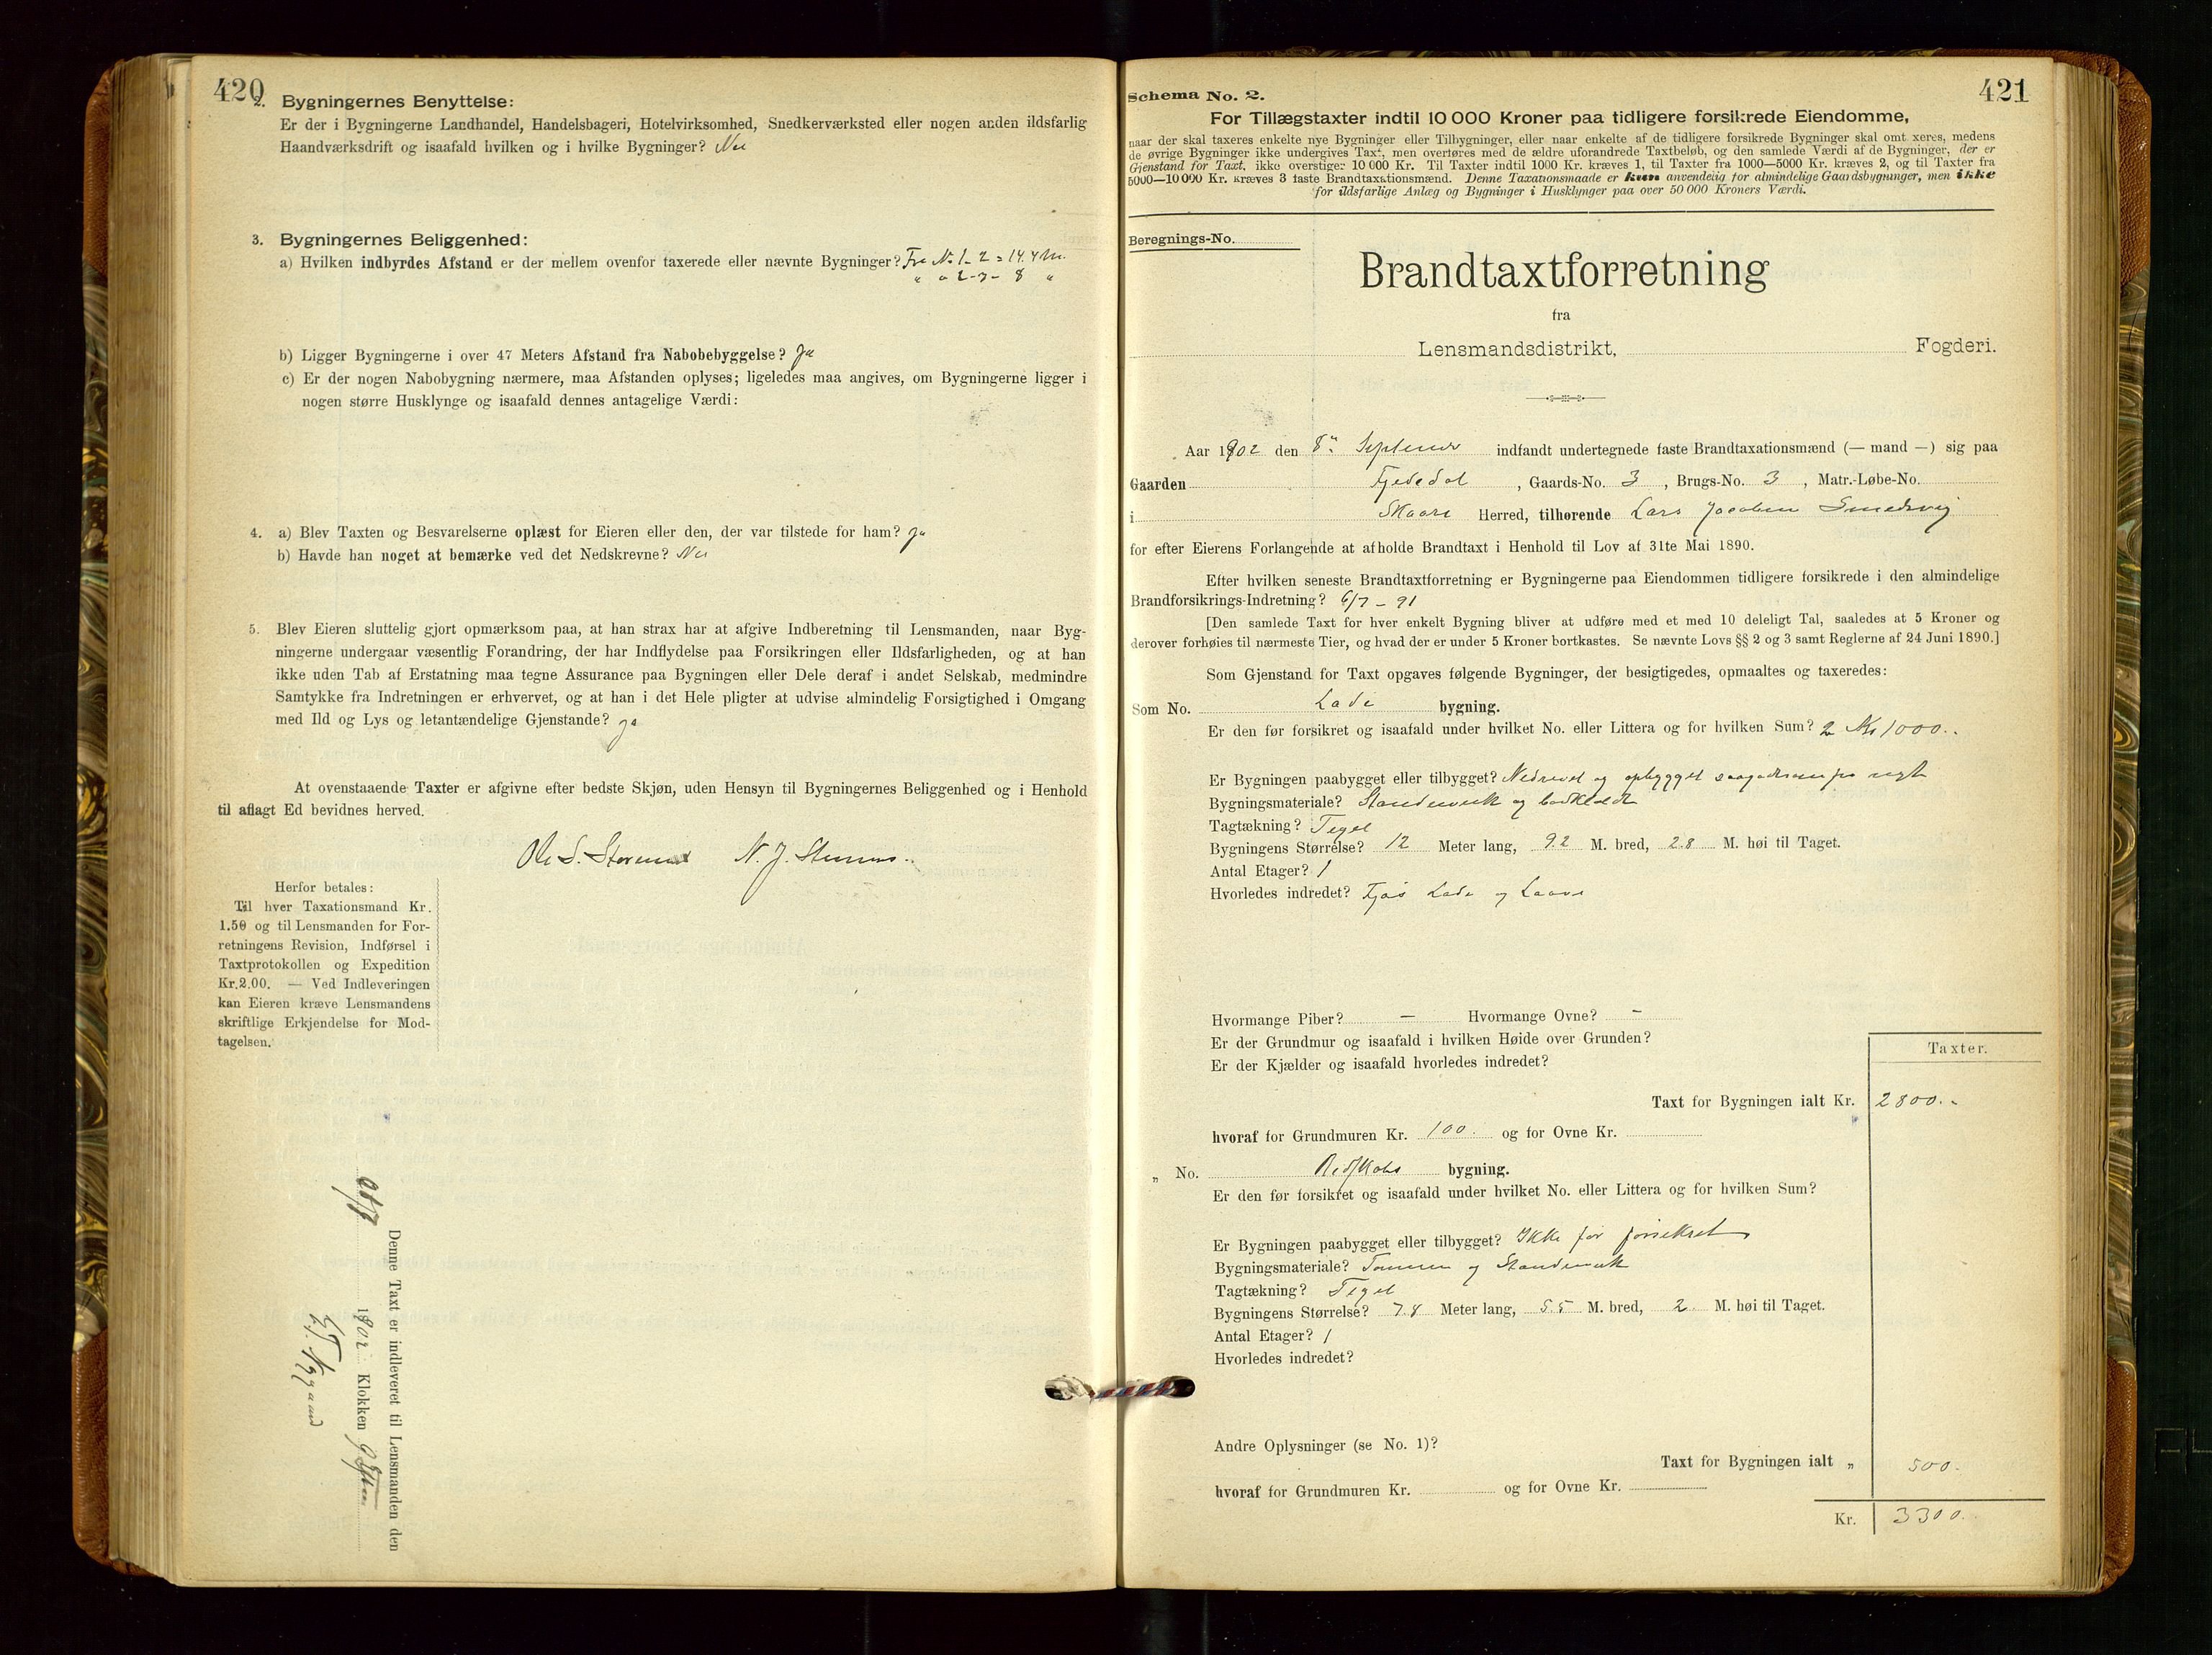 420
2. Bygningernes Benyttelse:
Er der i Bygningerne Landhandel, Handelsbageri, Hotelvirksomhed, Snedkerværksted eller nogen anden ildsfarlig
Haandværksdrift og isaafald hvilken og i hvilke Bygninger? Nei
3. Bygningernes Beliggenhed:
a) Hvilken indbyrdes Afstand er der mellem ovenfor taxerede eller nævnte Bygninger? Fra No 1-2 = 14.4 M.
" " 2-3 - 8 "
b) Ligger Bygningerne i over 47 Meters Afstand fra Nabobebyggelse? Ja
c) Er der nogen Nabobygning nærmere, maa Afstanden oplyses; ligeledes maa angives, om Bygningerne ligger i
nogen større Husklynge og isaafald dennes antagelige Værdi:
4. a) Blev Taxten og Besvarelserne oplæst for Eieren eller den, der var tilstede for ham? Ja
b) Havde han noget at bemærke ved det Nedskrevne? Nei
5. Blev Eieren sluttelig gjort opmærksom paa, at han strax har at afgive Indberetning til Lensmanden, naar Byg-
ningerne undergaar væsentlig Forandring, der har Indflydelse paa Forsikringen eller Ildsfarligheden, og at han
ikke uden Tab af Erstatning maa tegne Assurance paa Bygningen eller Dele deraf i andet Selskab, medmindre
Samtykke fra Indretningen er erhvervet, og at han i det Hele pligter at udvise almindelig Forsigtighed i Omgang
med Ild og Lys og letantændelige Gjenstande? ja
At ovenstaaende Taxter er afgivne efter bedste Skjøn, uden Hensyn til Bygningernes Beliggenhed og i Henhold
til aflagt Ed bevidnes herved.
Ole S. N. J.
Herfor betales:
Til hver Taxationsmand Kr.
1.50 og til Lensmanden for For-
retningens Revision, Indførsel i
Taxtprotokollen og Expedition
Kr.2.00. — Ved Indleveringen
kan Eieren kræve Lensmandens
skriftlige Erkjendelse for Mod-
tagelsen.
Denne Taxt er indleveret til Lensmanden den
1902 Klokken 9 Eftm
421
Schema No. 2.
For Tillægstaxter indtil 10 000 Kroner paa tidligere forsikrede Eiendomme,
naar der skal taxeres enkelte nye Bygninger eller Tilbygninger, eller naar enkelte af de tidligere forsikrede Bygninger skal omt xeres, medens
de øvrige Bygninger ikke undergives Taxt, men overtøres med de ældre uforandrede Taxtbeløb, og den samlede Værdi af de Bygninger, der er
Gjenstand for Taxt, ikke overstiger 10 000 Kr. Til Taxter indtil 1000 Kr. kræves 1, til Taxter fra 1000—5000 Kr. kræves 2, og til Taxter fra
5000—10 000 Kr. kræves 3 faste Brandtaxationsmænd. Denne Taxationsmaade er kun anvendelig for almindelige Gaardsbygninger, men ikke
for ildsfarlige Anlæg og Bygninger i Husklynger paa over 50 000 Kroners Værdi.
Beregnings-No.
Brandtaxtforretning
fra
Lensmandsdistrikt, Fogderi.
Aar 1902 den 8de September indfandt undertegnede faste Brandtaxationsmænd (— mand —) sig paa
Gaarden , Gaards-No. 3, Brugs-No. 3, Matr.-Løbe-No.
i Skaare Herred, tilhørende Lars Jacobsen Smedsvig
for efter Eierens Forlangende at afholde Brandtaxt i Henhold til Lov af 31te Mai 1890.
Efter hvilken seneste Brandtaxtforretning er Bygningerne paa Eiendommen tidligere forsikrede i den almindelige
Brandforsikrings-Indretning? 6/7 - 91
[Den samlede Taxt for hver enkelt Bygning bliver at udføre med et med 10 deleligt Tal, saaledes at 5 Kroner og
derover forhøies til nærmeste Tier, og hvad der er under 5 Kroner bortkastes. Se nævnte Lovs §§ 2 og 3 samt Reglerne af 24 Juni 1890.]
Som Gjenstand for Taxt opgaves følgende Bygninger, der besigtigedes, opmaaltes og taxeredes:
Som No. Lade bygning.
Er den før forsikret og isaafald under hvilket No. eller Littera og for hvilken Sum? 2 Kr 1000..
Er Bygningen paabygget eller tilbygget? Nedrevet og opbygget
Bygningsmateriale? Standerverk og bordklædt
Tagtækning? Tegel
Bygningens Størrelse? 12 Meter lang, 9.2 M. bred, 2.8 M. høi til Taget.
Antal Etager? 1
Hvorledes indredet? Fjøs Lade og Laave
Hvormange Piber? — Hvormange Ovne? -
Er der Grundmur og isaafald i hvilken Høide over Grunden?
Er der Kjælder og isaafald hvorledes indredet?
Taxter.
Taxt for Bygningen ialt Kr. 2800.-
hvoraf for Grundmuren Kr. 100. og for Ovne Kr.
„ No. Redskabs bygning.
Er den før forsikret og isaafald under hvilket No. eller Littera og for hvilken Sum?
Er Bygningen paabygget eller tilbygget? Ikke før forsikret
Bygningsmateriale? Tømmer og Standerverk
Tagtækning? Tegel
Bygningens Størrelse? 7.8 Meter lang, 5.5 M. bred, 2 M. høi til Taget.
Antal Etager? 1
Hvorledes indredet?
Andre Oplysninger (se No. 1)?
Taxt for Bygningen ialt „ 500.-
hvoraf for Grundmuren Kr. og for Ovne Kr.
Kr. 3300.